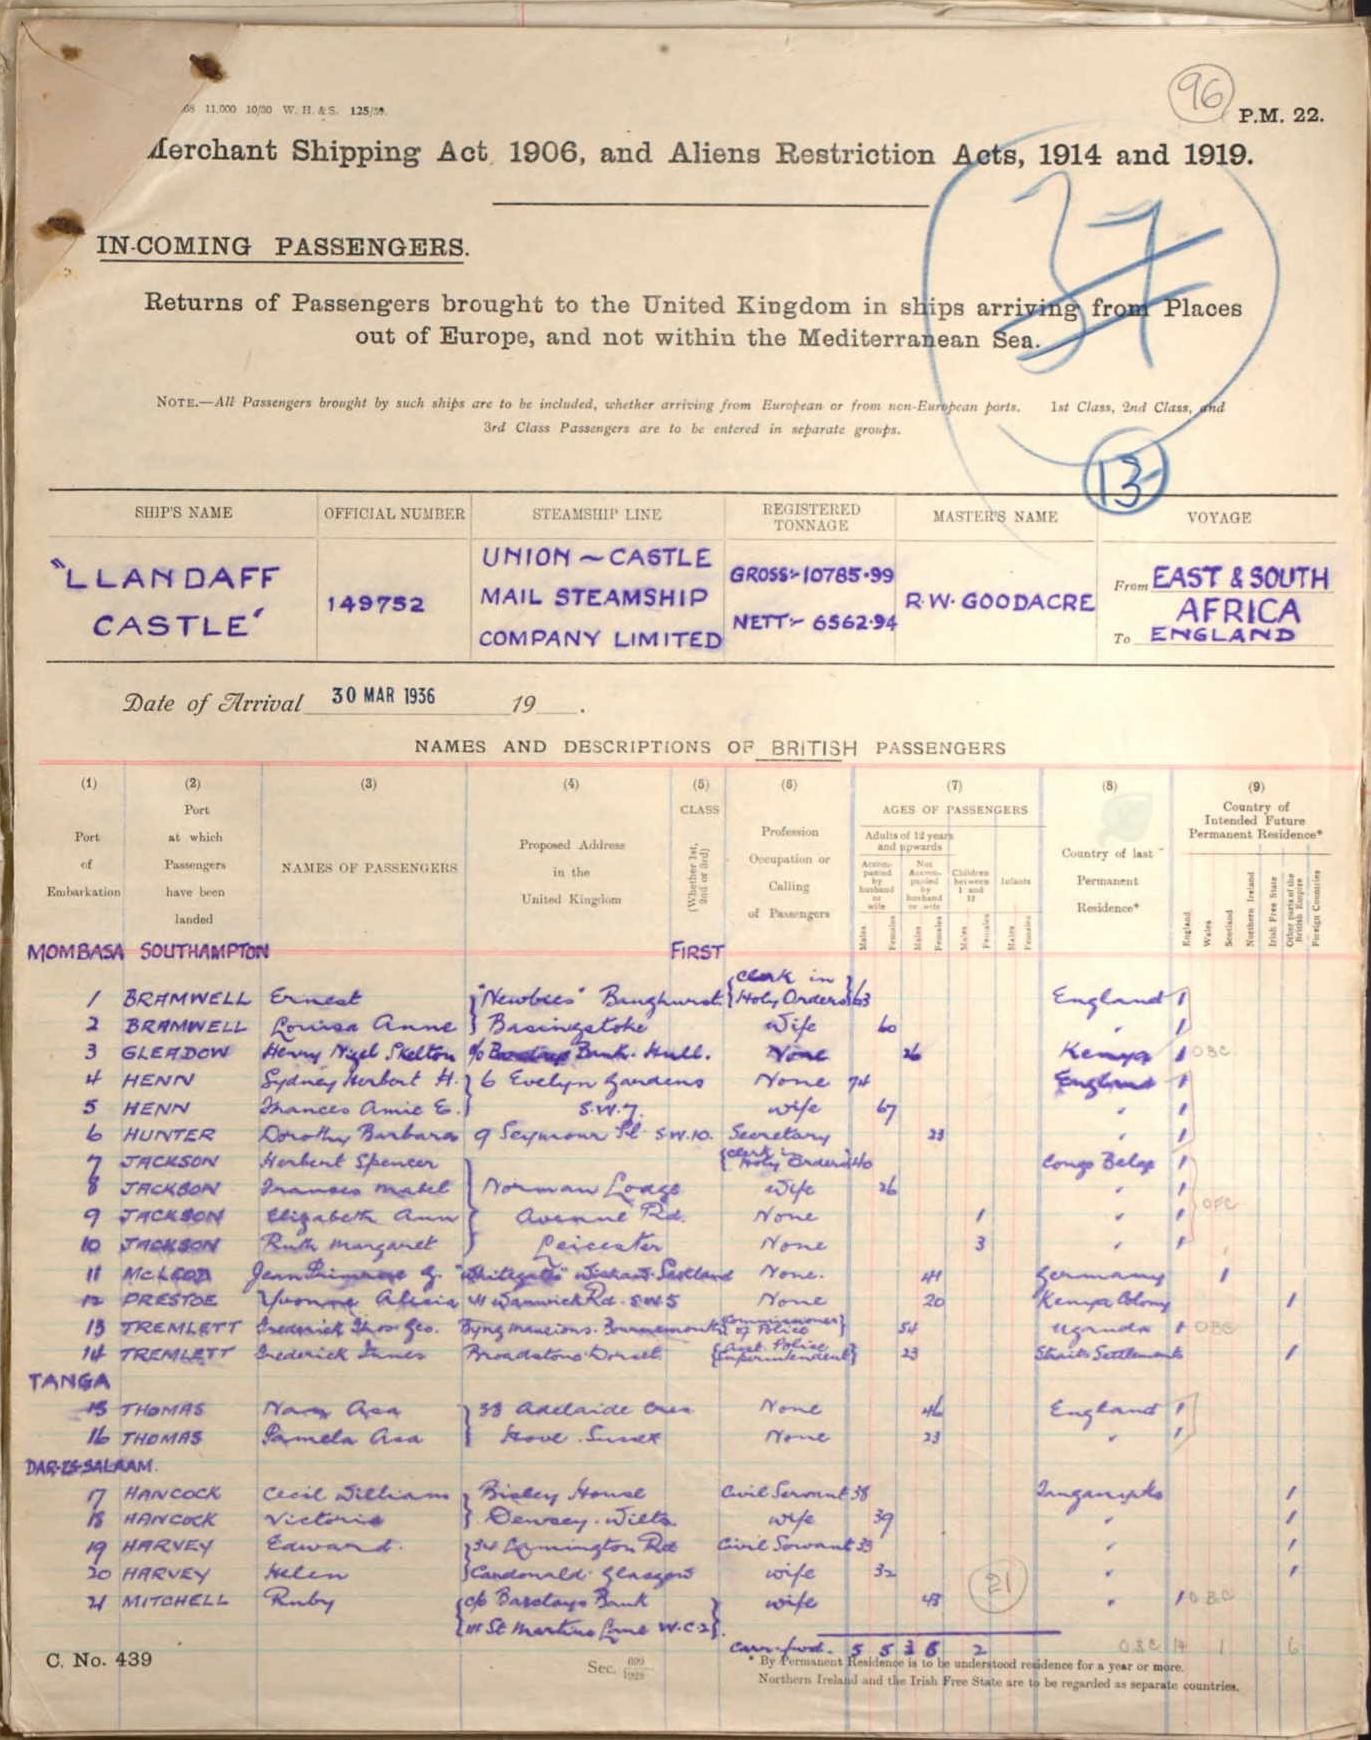 68 11,000 10/30 W. H. & S. 125/59.
96
P.M. 22.
Merchant Shipping Act, 1906, and Aliens Restriction Acts, 1914 and 1919.
37
IN-COMING PASSENGERS.
Returns of Passengers brought to the United Kingdom in ships arriving from Places
out of Europe, and not within the Mediterranean Sea.
NOTE.—All Passengers brought by such ships are to be included, whether arriving from European or from non-European ports. 1st Class, 2nd Class, and
3rd Class Passengers are to be entered in separate groups.
13
SHIP'S NAME OFFICIAL NUMBER STEAMSHIP LINE REGISTERED TONNAGE MASTER'S NAME VOYAGE
"LLANDAFF CASTLE" 149752 UNION ~ CASTLE MAIL STEAMSHIP COMPANY LIMITED GROSS:- 10785.99 NETT:- 6562.94 R.W. GOODACRE From EAST & SOUTH AFRICA To ENGLAND
Date of Arrival 30 MAR 1936 19 .
NAMES AND DESCRIPTIONS OF BRITISH PASSENGERS
(1) (2) (3) (4) (5) (6) (7) (8) (9)
Port of Embarkation
Port at which Passengers have been landed
NAMES OF PASSENGERS
Proposed Address in the United Kingdom
CLASS (Whether 1st, 2nd or 3rd)
Profession Occupation or Calling of Passengers
AGES OF PASSENGERS
Adults of 12 years and upwards
Accompanied by husband or wife
Not Accompanied by husband or wife
Children between 1 and 12
Infants
Males Females Males Females Males Females Males Females
Country of last Permanent Residence*
Country of Intended Future Permanent Residence*
England Wales Scotland Northern Ireland Irish Free State Other parts of the British Empire Foreign Countries
MOMBASA SOUTHAMPTON FIRST
1 BRAMWELL Ernest "Newbies" Baughurst {Clerk in Holy Orders} 63 England 1
2 BRAMWELL Louisa Anne Basingstoke Wife 60 " 1
3 GLEADOW Henry Nigel Skelton c/o Barclays Bank. Hull. None 26 Kenya 1 OBC
4 HENN Sydney Herbert H. 6 Evelyn Gardens None 74 England 1
5 HENN Frances Amie E. S.W.7. wife 67 " 1
6 HUNTER Dorothy Barbara 9 Seymour Pl. S.W.10. Secretary 23 " 1
7 JACKSON Herbert Spencer {Clerk in Holy Orders} 40 Congo Belge 1
8 JACKSON Frances Mabel Norman Lodge Wife 26 " 1
9 JACKSON Elizabeth Ann Avenue Rd. None 1 " 1
10 JACKSON Ruth Margaret Leicester None 3 " 1
11 McLEOD Jean Primrose G. "Whitegates" Wishaw. Scotland None. 41 Germany 1
12 PRESTOE Yvonne Alicia 41 Warwick Rd. S.W.5 None 20 Kenya Colony 1
13 TREMLETT Frederick Thos. Geo. Byng Mansions. Bournemouth {Commissioner of Police} 54 Uganda 1 OBC
14 TREMLETT Frederick Broadstone Dorset {Asst. Police Superintendent} 23 Straits Settlements 1
TANGA
15 THOMAS Asa 33 Adelaide Cres None 46 England 1
16 THOMAS Pamela Asa Hove. Sussex None 23 " 1
DAR-ES-SALAAM.
17 HANCOCK Cecil William Bisley House Civil Servant 38 Tanganyika 1
18 HANCOCK Victoria Wilts wife 39 " 1
19 HARVEY Edward. Rd Civil Servant 33 " 1
20 HARVEY Helen Cardonald. Glasgow wife 32 " 1
21 MITCHELL Ruby {c/o Barclays Bank wife 43 " 1 OBC
{111 St Martins Lane W.C.2}.
21
Carr. fwd. 5 5 3 6 2 OBC 14 1 6
C. No. 439 Sec. 699/1928
* By Permanent Residence is to be understood residence for a year or more.
Northern Ireland and the Irish Free State are to be regarded as separate countries.